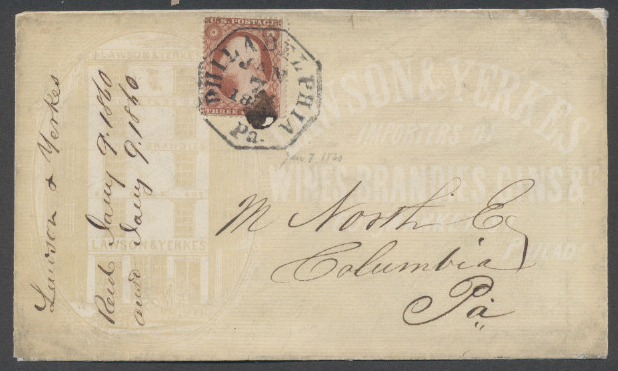 LAWSON & YERKES
U.S. POSTAGE
THREE
PHILADELPHIA
JAN
7
18
Pa.
Jan 7. 1860
LAWSON & YERKES
IMPORTERS OF
WINES, BRANDIES, GINS &c
PHILAD
LAWSON & YERKES
Lawson & Yerkes
Recd Jany 9. 1860
ansd Jany 9, 1860
M North Esq
Columbia
Pa